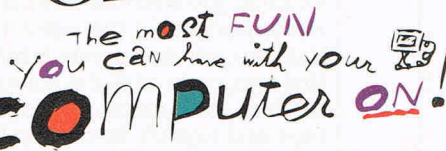 The most FUN
you can have with your
COMPUTER ON!